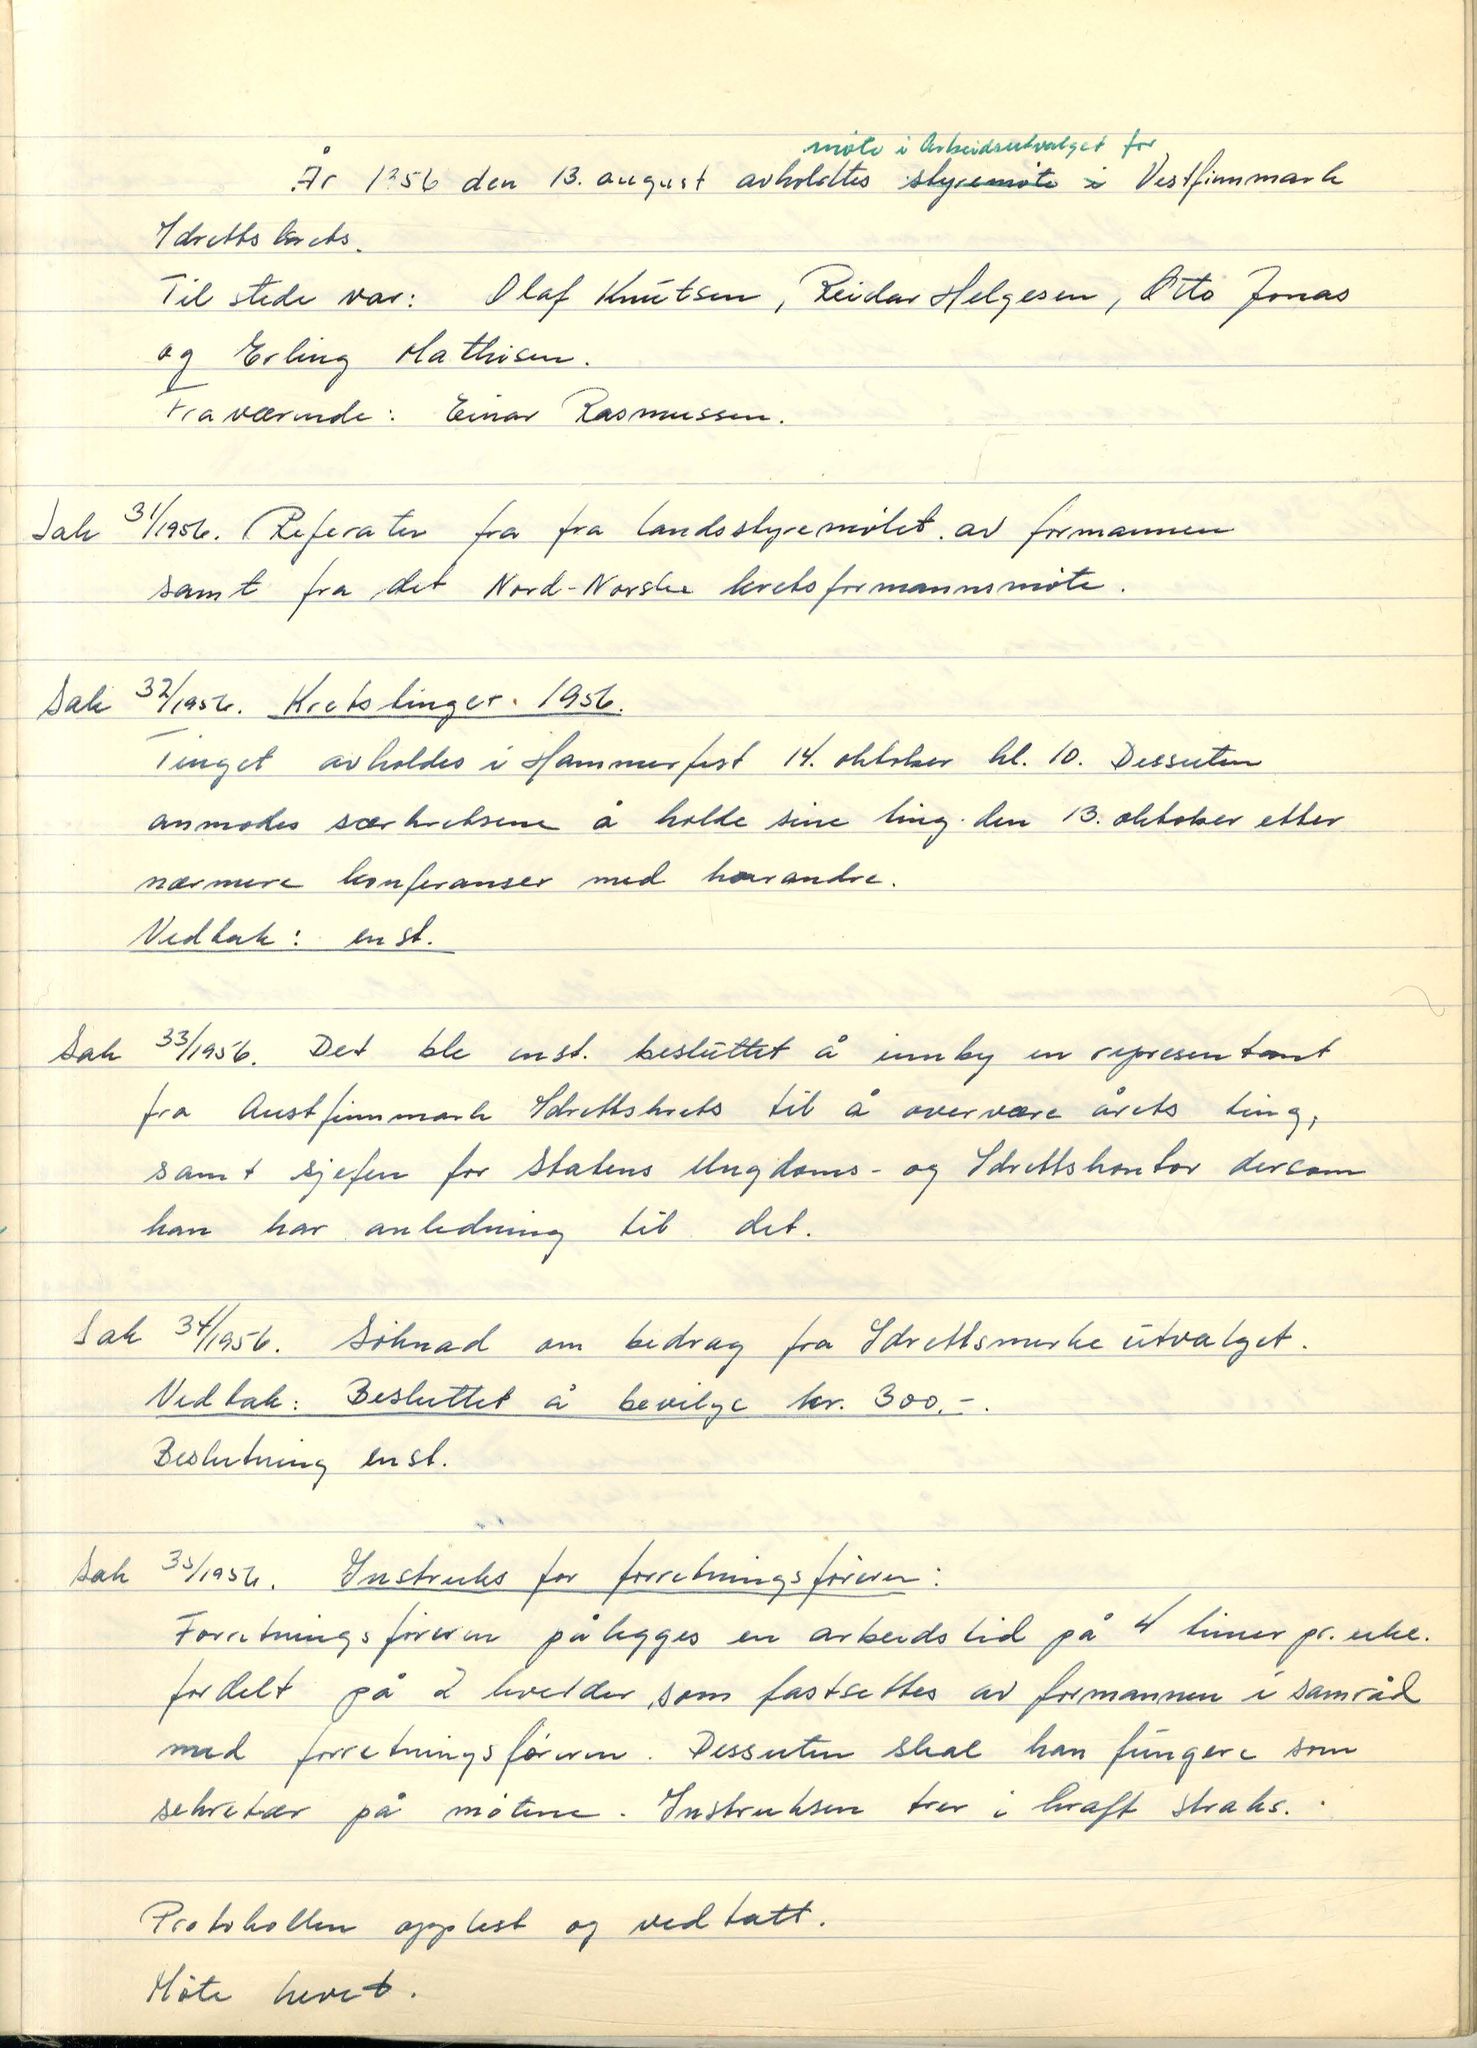 møte i Arbeidsutvalget for
År 1956 den 13. august avholdtes styremøte i Vestfinnmark
Idrettskrets.
Til stede var: Olaf Knutsen, Reidar Helgesen, Otto Jonas
og Erling Mathisen.
Fraværende: Einar Rasmussen.
Sak 31/1956. Referater fra fra landsstyremøtet av formannen
samt fra det Nord-Norske kretsformannsmøte.
Sak 32/1956. Kretstinget 1956.
Tinget avholdes i Hammerfest 14. oktober kl. 10. Dessuten
anmodes særkretsene å holde sine ting den 13. oktober etter
nærmere konferanser med hverandre.
Vedtak: enst.
Sak 33/1956. Det ble enst. besluttet å innby en representant
fra Austfinnmark Idrettskrets til å overvære årets ting,
samt sjefen for Statens Ungdoms- og Idrettskontor dersom
han har anledning til det.
Sak 34/1956. Søknad om bedrag fra Idrettsmerkeutvalget.
Vedtak: Besluttet å bevilge kr. 300.-.
Beslutning enst.
Sak 35/1956. Instruks for forretningsføreren:
Forretningsføreren pålegges en arbeidstid på 4 timer pr. uke.
fordelt på 2 kvelder som fastsettes av formannen i samråd
med forretningsføreren. Dessuten skal han fungere som
sekretær på møtene. Instruksen trer i kraft straks.
Protokollen opplest og vedtatt.
Møte hevet.